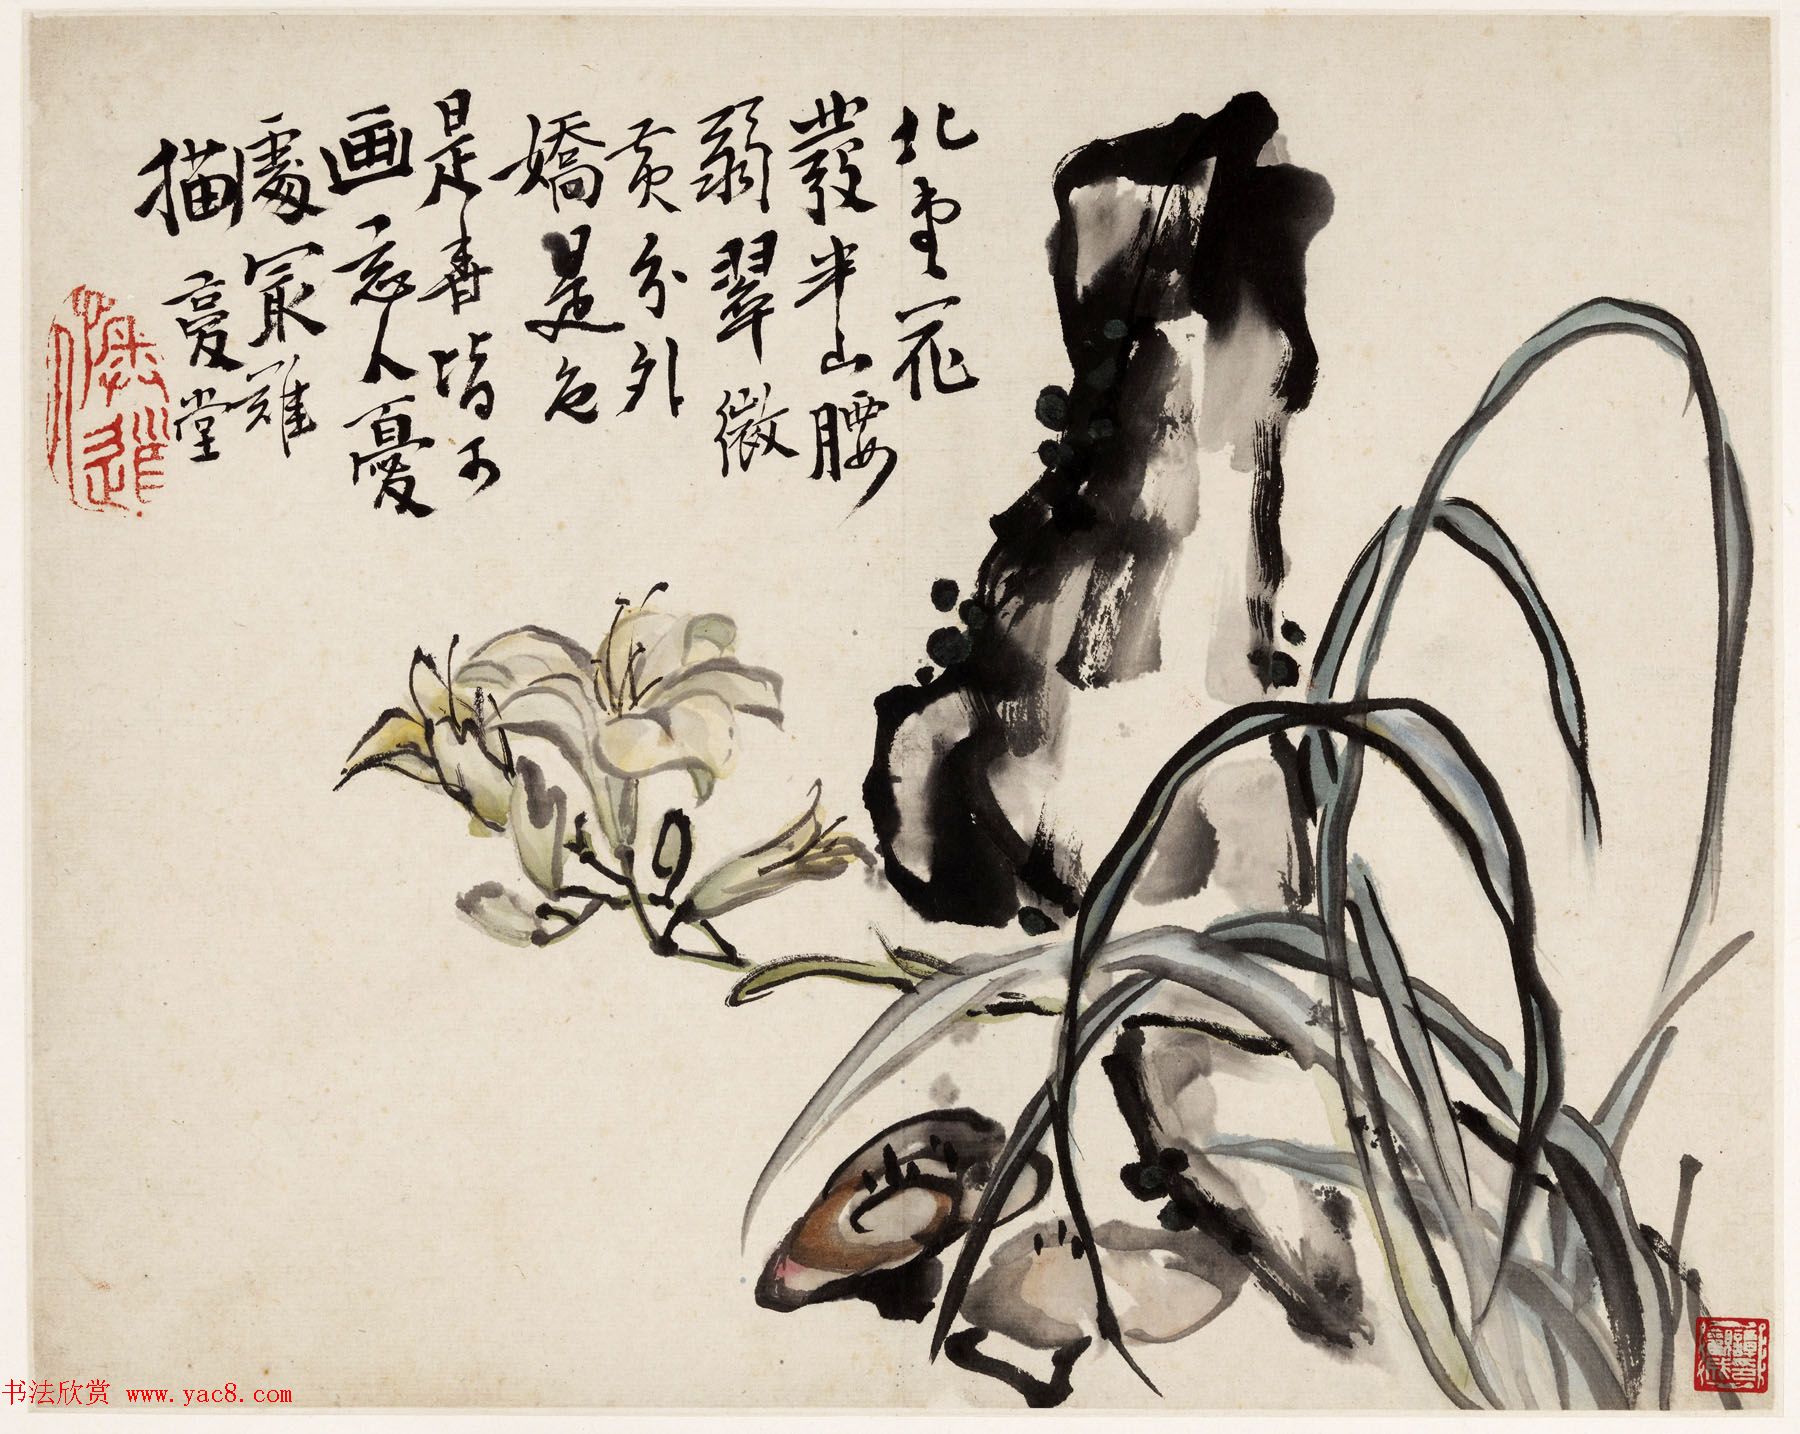 北堂花
發半山腰
翦翠微
黄分外
嬌是色
是香皆可
画忘人憂
處最難
描 憂堂
书法欣赏 www.yac8.com